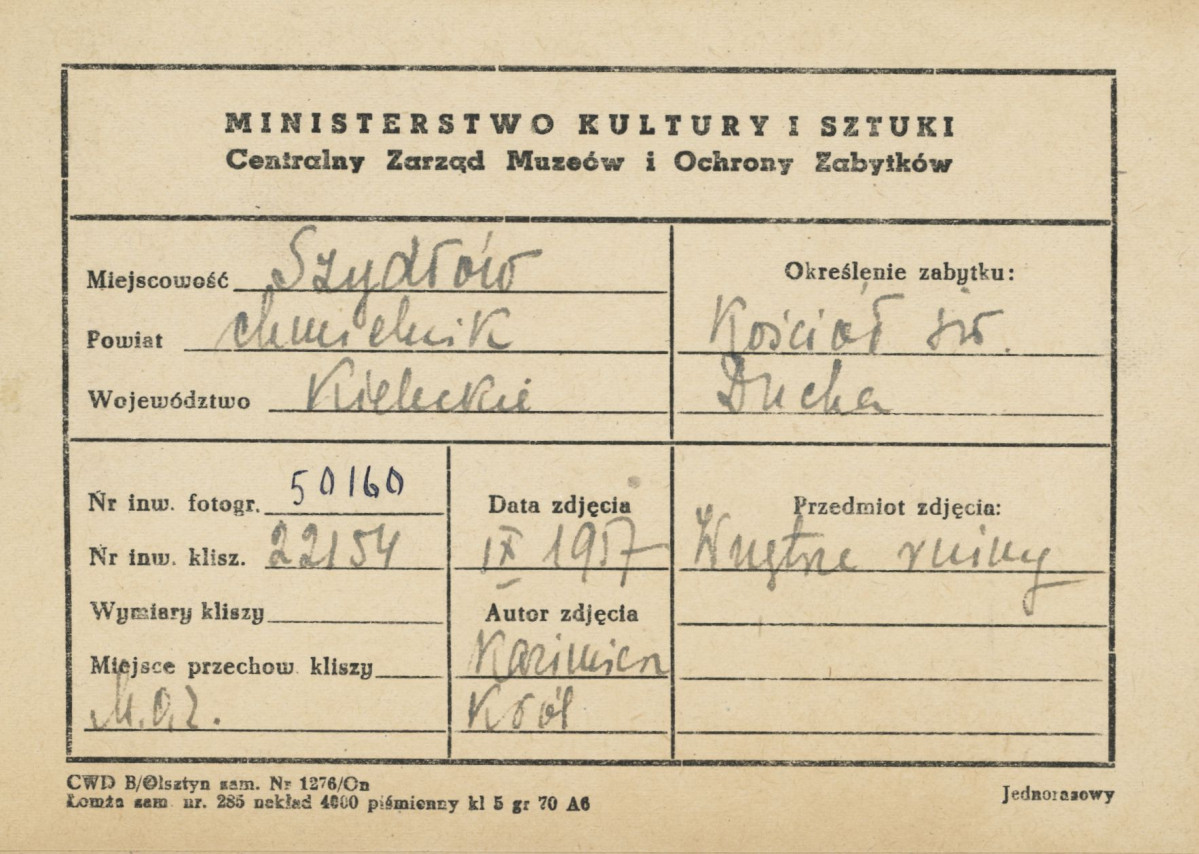 MINISTERSTWO KULTURY I SZTUKI
Centralny Zarząd Muzeów i Ochrony Zabytków
Miejscowość Szydłów
Powiat chmielnik
Województwo Kieleckie
Określenie zabytku:
Kościół św.
Ducha
Nr inw. fotogr. 50160
Nr inw. klisz. 22154
Wymiary kliszy
Miejsce przechow. kliszy
M.O.Z.
Data zdjęcia
IX 1957
Autor zdjęcia
Kazimierz
Król
Przedmiot zdjęcia:
Wnętrze ruiny
CWD B/Olsztyn zam. Nr 1276/On
Łomża zam. nr. 285 nakład 4000 piśmienny kl 5 gr 70 A6
Jednorazowy